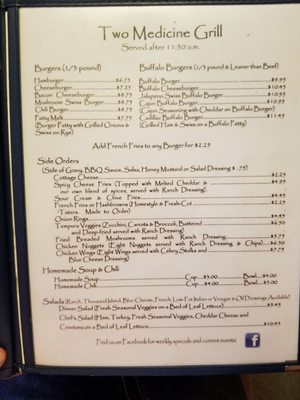 Two Medicine Grill
Served after 11:30 a.m.
Burgers (1/3 pound)
Hamburger $6.75
Cheeseburger $7.25
Bacon Cheeseburger $8.75
Mushroom Swiss Burger $8.75
Chili Burger $8.75
Patty Melt $7.75
(Burger Patty with Grilled Onions &
Swiss on Rye)
Buffalo Burgers (1/3 pound & Leaner than Beef)
Buffalo Burger $9.95
Buffalo Cheeseburger $10.45
Jalapeno Swiss Buffalo Burger $10.95
Cajun Buffalo Burger $10.95
(Cajun Seasoning with Cheddar on Buffalo Burger)
Cadillac Buffalo Burger $11.45
(Grilled Ham & Swiss on a Buffalo Patty)
Add French Fries to any Burger for $2.25
Side Orders
(Side of Gravy, BBQ Sauce, Salsa, Honey Mustard or Salad Dressing $ .75)
Cottage Cheese $2.25
Spicy Cheese Fries (Topped with Melted Cheddar &
our own blend of spices, served with Ranch Dressing) $4.95
Sour Cream & Chive Fries $4.95
French Fries or Hashbrowns (Homestyle & Fresh-Cut
Taters. Made to Order) $2.95
Onion Rings $4.95
Tempura Veggies (Zucchini, Carrots & Broccoli, Battered
and Deep-fried served with Ranch Dressing) $6.50
Fried Breaded Mushrooms served with Ranch Dressing $5.75
Chicken Nuggets (Eight Nuggets served with Ranch Dressing & Chips) $6.50
Chicken Wings (Eight Wings served with Celery Stalks and
Blue Cheese Dressing) $7.75
Homemade Soup & Chili
Homemade Soup Cup...$3.00 Bowl...$5.00
Homemade Chili Cup...$3.00 Bowl...$5.00
Salads (Ranch, Thousand Island, Blue Cheese, French, Low-Fat Italian or Vinegar & Oil Dressings Available)
Dinner Salad (Fresh Seasonal Veggies on a Bed of Leaf Lettuce) $5.45
Chef's Salad (Ham, Turkey, Fresh Seasonal Veggies, Cheddar Cheese and
Croutons on a Bed of Leaf Lettuce $10.45
Find us on Facebook for weekly specials and current events!
f